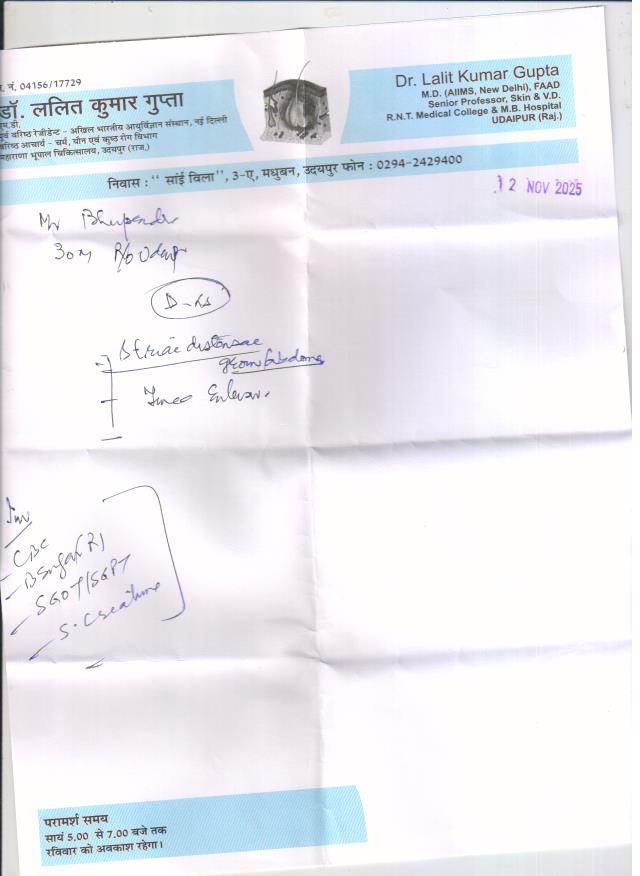 र. नं. 04156/17729
डॉ. ललित कुमार गुप्ता
एम.डी.
पूर्व वरिष्ठ रेजीडेन्ट - अखिल भारतीय आयुर्विज्ञान संस्थान, नई दिल्ली
वरिष्ठ आचार्य - चर्म, यौन एवं कुष्ठ रोग विभाग
महाराणा भूपाल चिकित्सालय, उदयपुर (राज.)
Dr. Lalit Kumar Gupta
M.D. (AIIMS, New Delhi), FAAD
Senior Professor, Skin & V.D.
R.N.T. Medical College & M.B. Hospital
UDAIPUR (Raj.)
निवास : " सांई विला", 3-ए, मधुबन, उदयपुर फोन : 0294-2429400
12 NOV 2025
Mr Bhupendra
30M R/o Udaipur
Striae distensae
groin
Tinea
Inv
CBC
B Sugar (R)
SGOT/SGPT
S. Creatinine
परामर्श समय
सायं 5.00 से 7.00 बजे तक
रविवार को अवकाश रहेगा।